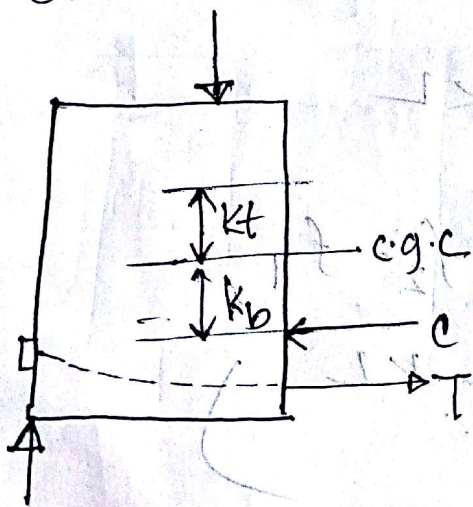 Kt
c.g.c
Kb
C
T